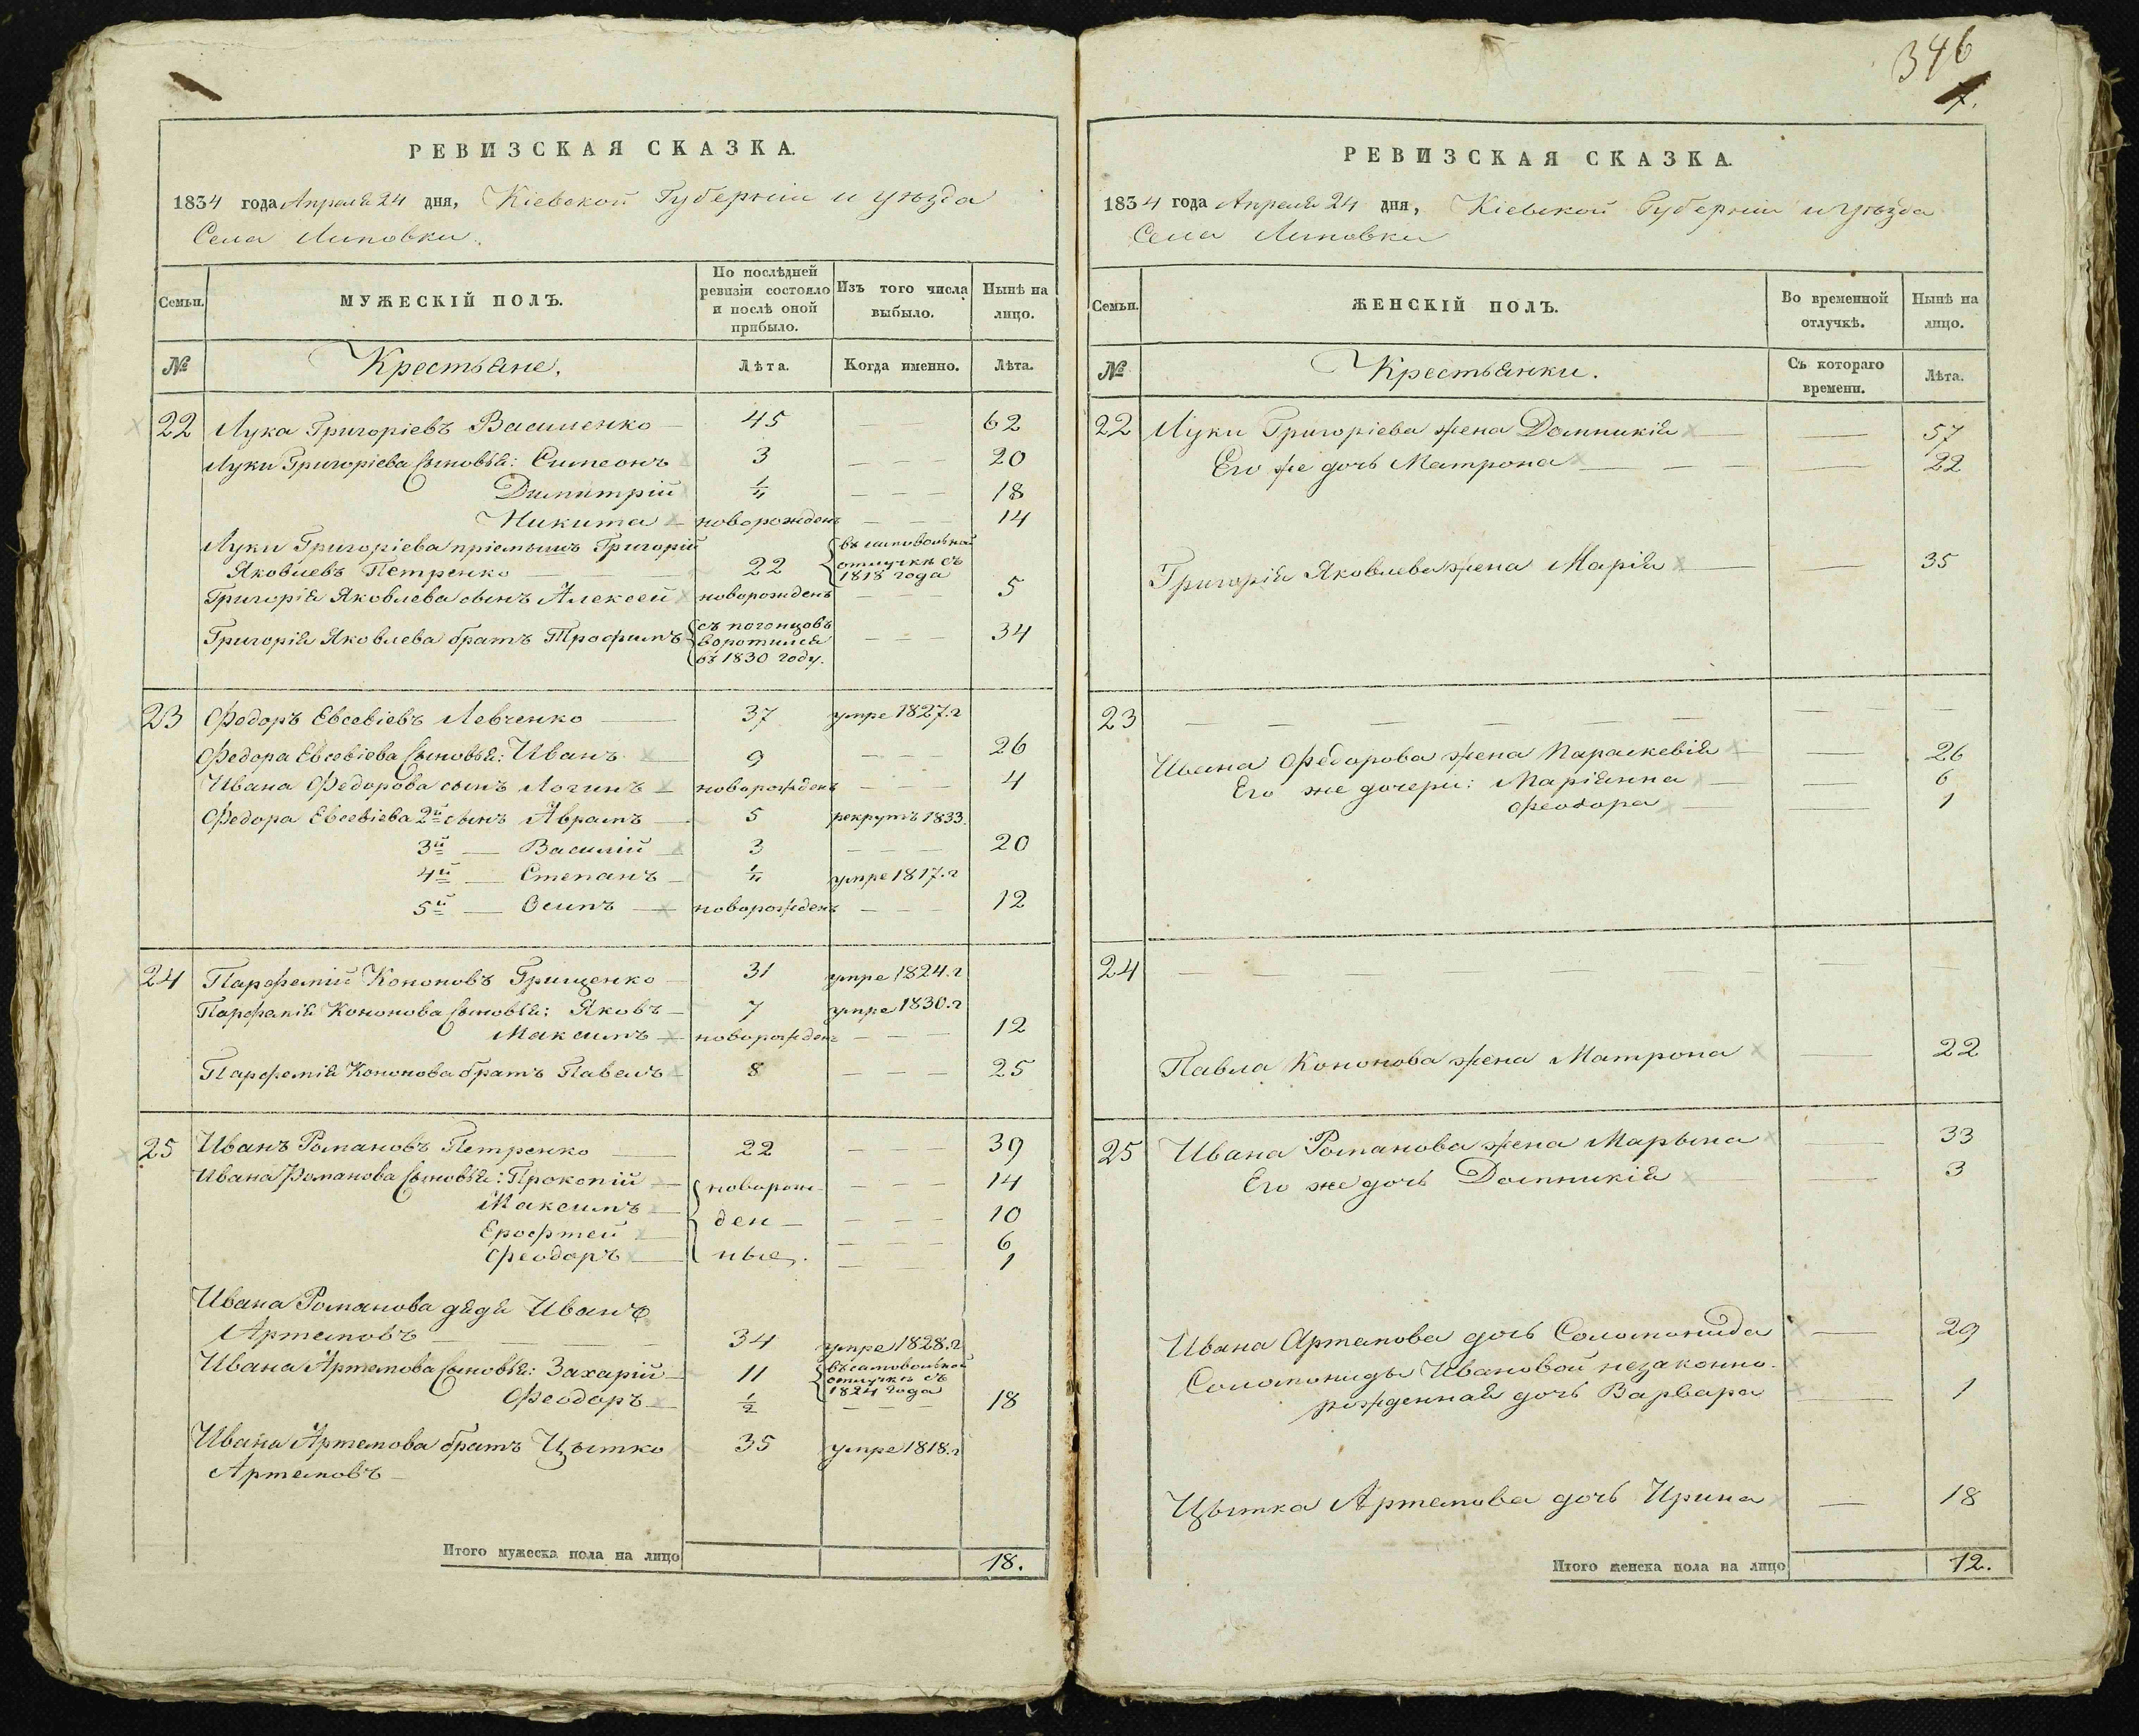 346
7.
РЕВИЗСКАЯ СКАЗКА.
1834 года Апреля 24 дня, Кіевской Губерніи и уѣзда
Села Липовки.
Семьи.
МУЖЕСКІЙ ПОЛЪ.
По послѣдней ревизіи состояло и послѣ оной прибыло.
Изъ того числа выбыло.
Нынѣ на лицо.
№
Крестьяне.
Лѣта.
Когда именно.
Лѣта.
22 Лука Григоріевъ Василенко 45 62
Луки Григоріева сыновья: Симеонъ 3 20
Димитрій 18
Никита новорожденъ 14
Луки Григоріева пріемышъ Григорій
Яковлевъ Петренко 22 въ самовольной отлучкѣ съ 1818 года
Григорія Яковлева сынъ Алексей новорожденъ 5
Григорія Яковлева братъ Трофимъ съ погонцовъ воротился въ 1830 году. 34
23 Федоръ Евсевіевъ Левченко 37 умре 1827.г
Федора Евсевіева сыновья: Иванъ 9 26
Ивана Федорова сынъ Логинъ новорожденъ 4
Федора Евсевіева 2й сынъ Аврамъ 5 рекрутъ 1833.
3й — Василій 3 20
4й — Степанъ умре 1817.г
5й — Осипъ новорожденъ 12
24 Парфемій Кононовъ Грищенко 31 умре 1824.г
Парфемія Кононова сыновья: Яковъ 7 умре 1830.г
Максимъ новорожденъ 12
Парфемія Кононова братъ Павелъ 8 25
25 Иванъ Романовъ Петренко 22 39
Ивана Романова сыновья: Прокопій новорож- 14
Максимъ ден- 10
Ерофтей 6
Феодоръ ные. 1
Ивана Романова дядя Иванъ
Артемовъ 34 умре 1828.г
Ивана Артемова сыновья: Захарій 11 въ самовольной отлучкѣ съ 1824 года
Феодоръ 1/2 18
Ивана Артемова братъ Цытко 35 умре 1818.г
Артемовъ
Итого мужеска пола на лицо 18.
РЕВИЗСКАЯ СКАЗКА.
1834 года Апреля 24 дня, Кіевской Губерніи и уѣзда
Села Липовки
Семьи.
ЖЕНСКІЙ ПОЛЪ.
Во временной отлучкѣ.
Нынѣ на лицо.
№
Крестьянки.
Съ котораго времени.
Лѣта.
22 Луки Григоріева жена Домникія 57
Его же дочь Матрона 22
Григорія Яковлева жена Марія 35
23
Ивана Федорова жена Параскевія 26
Его же дочери: Маріянна 6
Феодора 1
24
Павла Кононова жена Матрона 22
25 Ивана Романова жена Марьына 33
Его же дочь Домникія 3
Ивана Артемова дочь Соломонида 29
Соломониды Ивановой незаконно-
рожденная дочь Варвара 1
Цытка Артемова дочь Ирина 18
Итого женска пола на лицо 12.